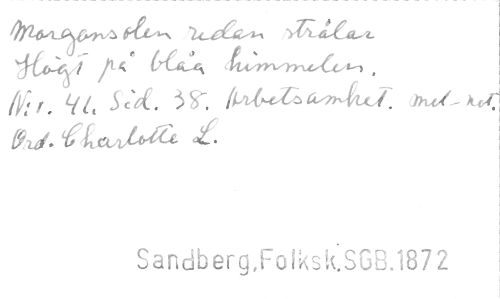 Morgonsolen redan strålar
Högt på blåa himmelen.
N:r. 41. Sid. 38. Arbetsamhet. mel-not.
Ord. Charlotte L.
Sandberg,Folksk.SGB.1872